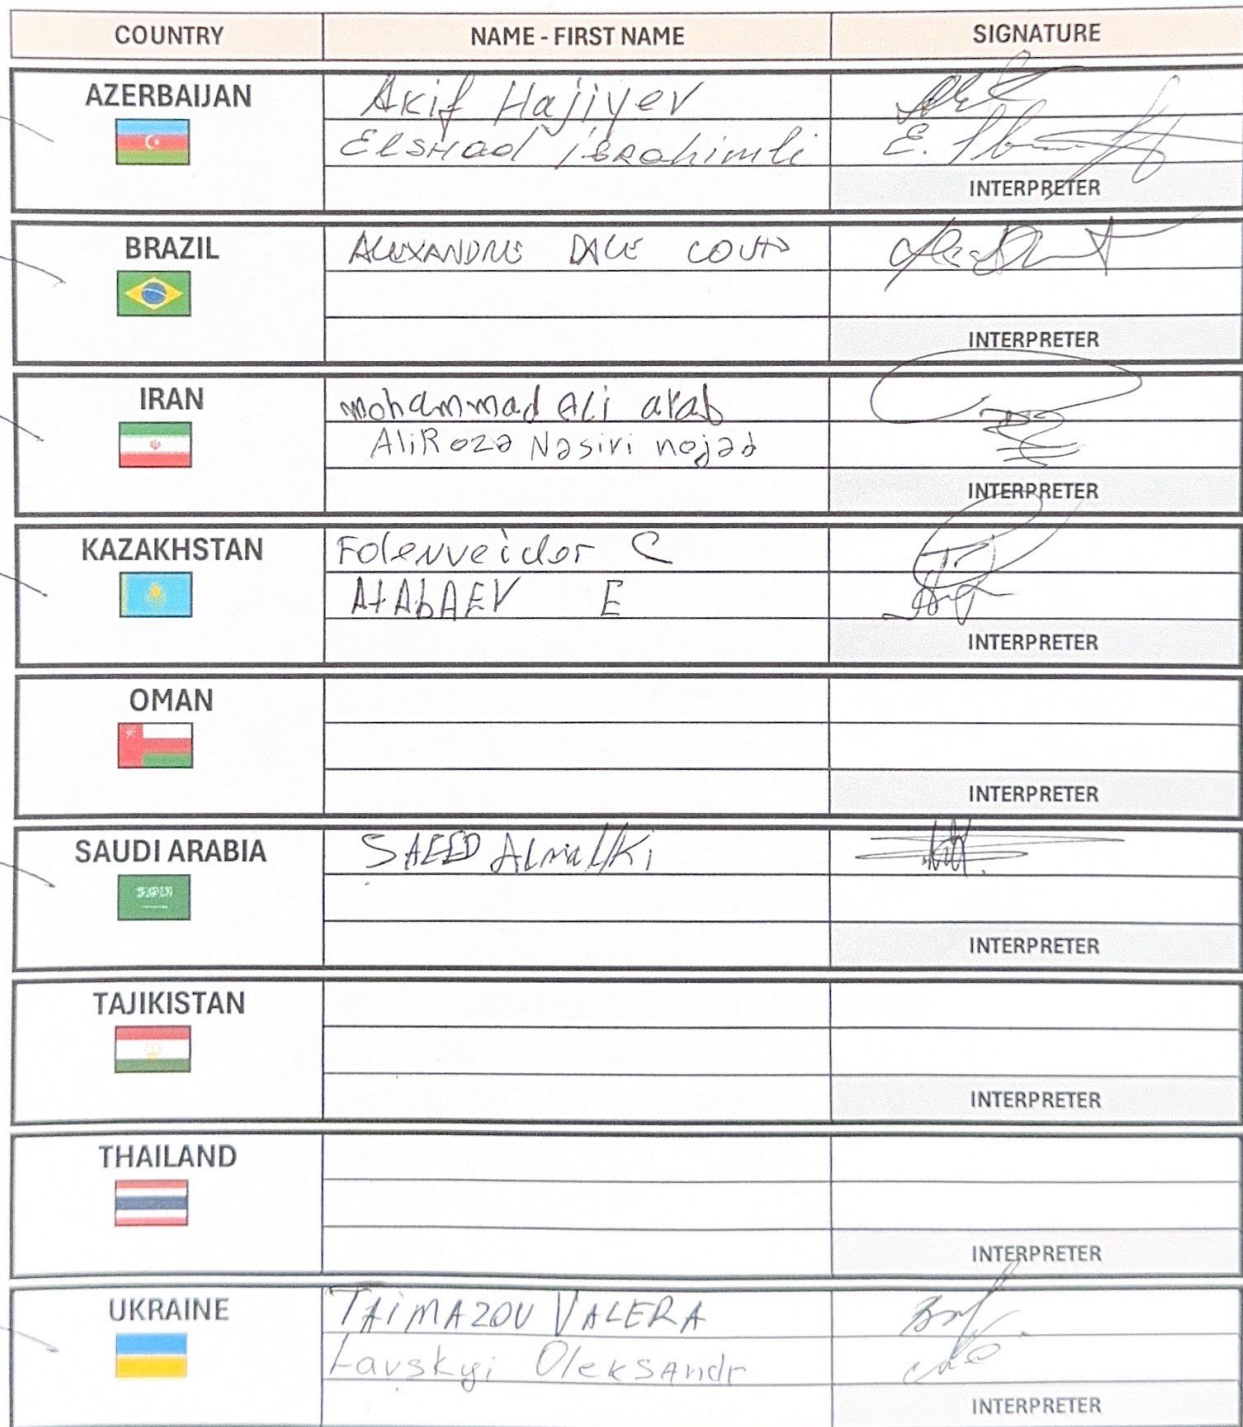 COUNTRY NAME - FIRST NAME SIGNATURE
AZERBAIJAN Akif Hajiyev
Elshad ibrahimli
INTERPRETER
BRAZIL ALEXANDRE DALE COUTO
INTERPRETER
IRAN mohammad Ali arab
AliRoza Nasiri nejad
INTERPRETER
KAZAKHSTAN C
AtAbAEV E
INTERPRETER
OMAN
INTERPRETER
SAUDI ARABIA SAEED Almalki
INTERPRETER
TAJIKISTAN
INTERPRETER
THAILAND
INTERPRETER
UKRAINE TAIMAZOV VALERA
Lavskyi Oleksandr
INTERPRETER